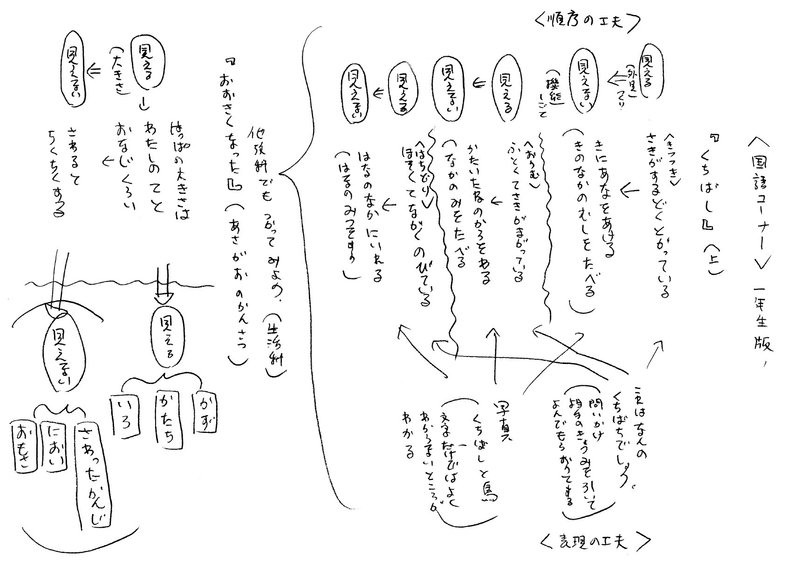 〈国語コーナー〉一年生版
『くちばし』(上)
〈順序の工夫〉
見える
(外見)
見えない
(機能)
見える
見えない
見える
見えない
〈きつつき〉
さきがするどくとがっている
きにあなをあける
(きのなかのむしをたべる)
〈おうむ〉
ふとくてさきがまがっている
かたいたねのからをわる
(なかのみをたべる)
〈はちどり〉
ほそくてながくのびている
はなのなかにいれる
(はなのみつをすう)
〈表現の工夫〉
これはなんの
くちばしでしょう。
問いかけ
相手のきょうみを引いて
よんでもらおうとする
写真
くちばしと鳥
文字だけではよく
わからないところが
わかる
他教科でもつかってみよう。(生活科)
『おおきくなった』(あさがおのかんさつ)
見える
(大きさ)
見えない
はっぱの大きさは
わたしのてと
おなじくらい
さわると
ちくちくする
見える
かず
かたち
いろ
見えない
さわったかんじ
におい
おもさ